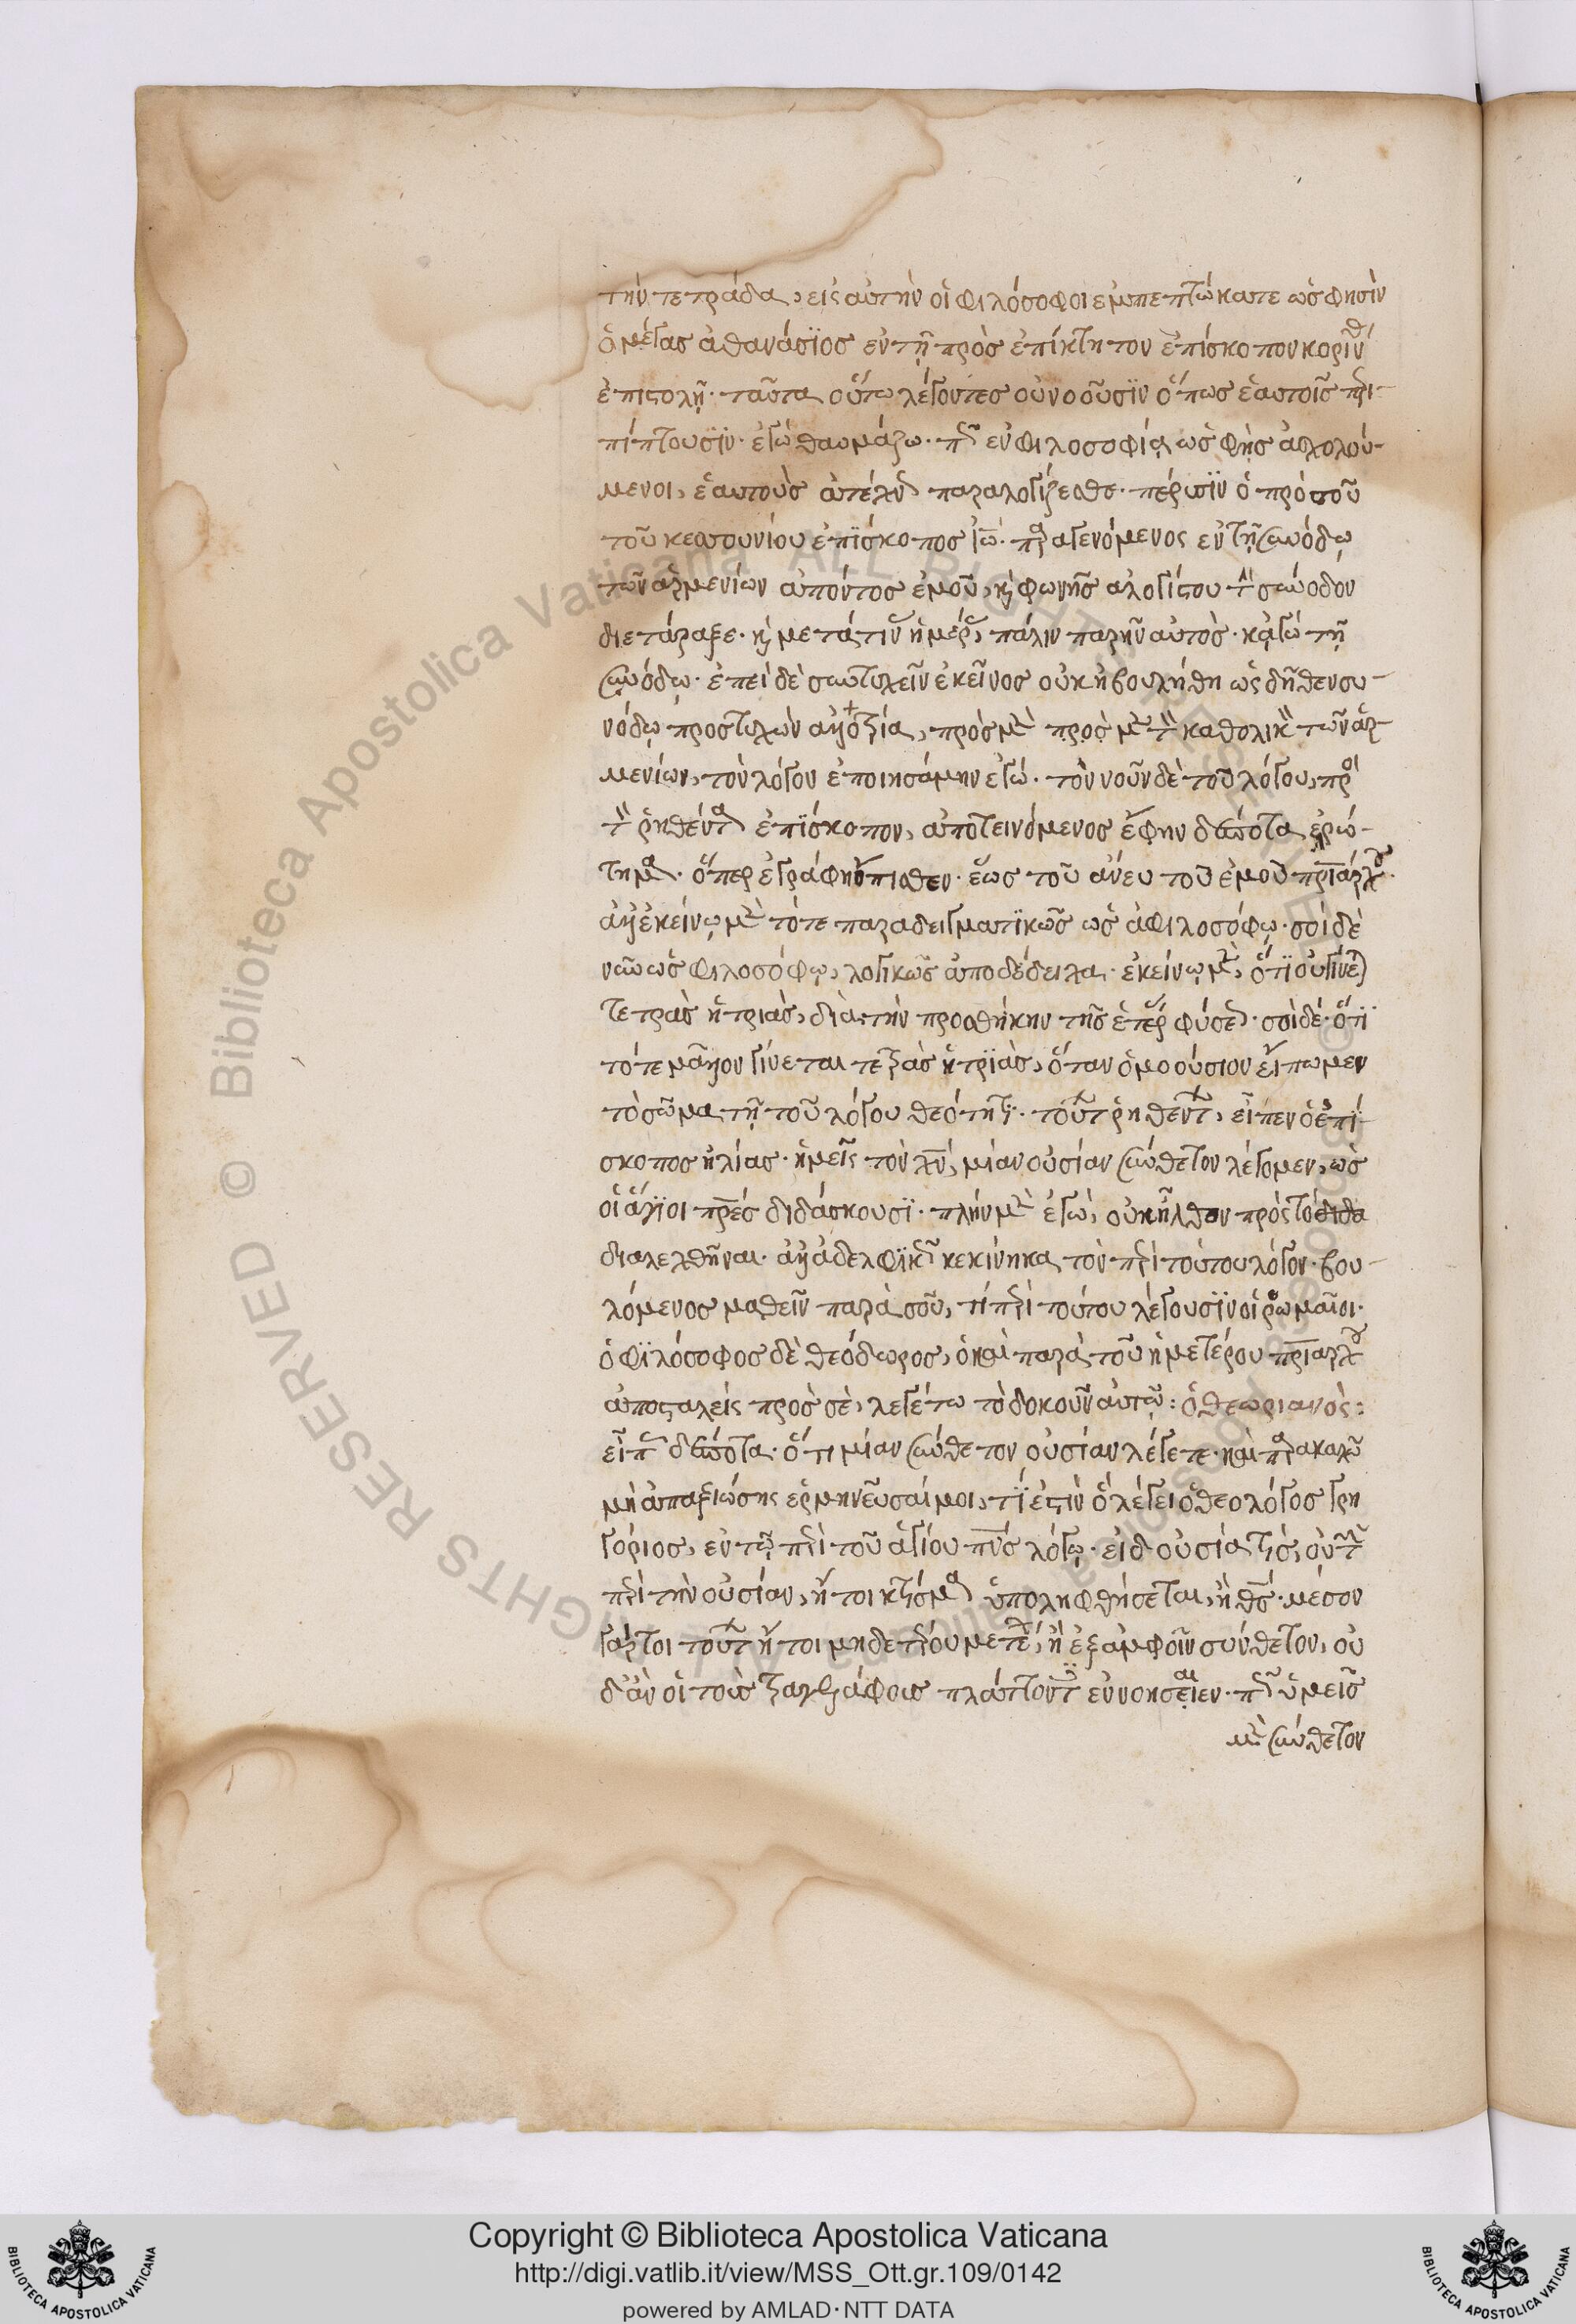 τὴν τετράδα, εἰς αὐτὴν οἱ φιλόσοφοι ἐμπεπτώκατε ὡς φησὶν
ὁ μέγας ἀθανάσϊος ἐν τῇ πρὸς ἐπίκτητον ἐπίσκοπον κορίνθ
ἐπιστολῇ. ταῦτα οὕτω λέγοντες οὐ νοοῦσϊν ὅπως ἑαυτοῖς περι-
πίπτουσϊν. ἐγὼ θαυμάζω. πῶς ἐν φιλοσοφίᾳ ὡς φῂς ἀσχολού-
μενοι, ἑαυτοὺς παραλογίζεσθε. πέρυσϊν ὁ πρὸ σοῦ
τοῦ κεσουνίου ἐπΐσκοπος ἰω. παραγενόμενος ἐν τῇ συνόδῳ
τῶν ἀρμενίων ἀπόντος ἐμοῦ, καὶ φωνῆς ἀλογίστου τὴν σύνοδον
διετάραξε. καὶ μετά τινας ἡμέρας, πάλιν παρῆν αὐτὸς. κἀγὼ τῇ
συνόδῳ. ἐπεὶ δὲ συντυχεῖν ἐκεῖνος οὐκ ἠβουλήθη ὡς δῆθεν συ-
νόδῳ προστυχὼν ἀλλοτρίᾳ, πρὸς μὲν πρὸς μὲν τὸν καθολικὸν τῶν ἀρ-
μενίων, τὸν λόγον ἐποιησάμην ἐγώ. τὸν νοῦν δὲ τοῦ λόγου, πρὸς
τὸν ῥηθέντα ἐπΐσκοπον, ἀποτεινόμενος ἔφην δέσποτα ἐρώ-
τημα. ὅπερ ἐγράφη ὄπισθεν. ἕως τοῦ ἄνευ τοῦ ἐμοῦ πριάρχου.
ἀλλ' ἐκείνῳ μὲν τότε παραδειγματϊκῶς ὡς ἀφιλοσόφῳ. σοὶ δὲ
νῦν ὡς φιλοσόφῳ, λογικῶς ἀποδέδειχα. ἐκείνῳ μὲν, ὅτϊ οὐ γίνεται
τετρὰς ἡ τριὰς, διὰ τὴν προσθήκην τῆς ἑτέρας φύσεως. σοὶ δέ. ὅτϊ
τότε μᾶλλον γίνεται τετρὰς ἡ τρϊὰς, ὅταν ὁμοούσιον εἴπωμεν
τὸ σῶμα τῇ τοῦ λόγου θεότητι. τούτων ῥηθέντων, εἶπεν ὁ ἐπΐ-
σκοπος ἠλίας. ἡμεῖς τὸν χν, μίαν οὐσίαν σύνθετον λέγομεν, ὡς
οἱ ἅγϊοι πρες διδάσκουσϊ. πλὴν μὲν ἐγὼ, οὐκ ἦλθον πρὸς τὸ διδα
διαλεχθῆναι. ἀλλ' ἀδελφϊκῶς κεκίνηκα τὸν περὶ τούτου λόγον. βου-
λόμενος μαθεῖν παρὰ σοῦ, τί περὶ τούτου λέγουσϊν οἱ ῥωμαῖοι.
ὁ φϊλόσοφος δὲ θεόδωρος, ὁ καὶ παρὰ τοῦ ἡμετέρου πριάρχου
ἀποσταλεὶς πρὸς σὲ, λεγέτω τὸ δοκοῦν αὐτῷ: ὁ θεωριανὸς:
εἶπας δέσποτα. ὅτι μίαν σύνθετον οὐσίαν λέγετε. καὶ παρακαλῶ
μὴ ἀπαξιώσῃς ἑρμηνεῦσαί μοι, τΐ ἐστὶν ὃ λέγει ὁ θεολόγος γρη
γόριος, ἐν τῷ περὶ τοῦ ἁγίου πνς λόγῳ. εἰ δ' οὐσία τίς, οὐ τῶν
περὶ τὴν οὐσίαν, ἤτοι κτίσμα ὑποληφθήσεται, ἢ θς. μέσον
γάρ τοι τούτων ἤτοι μηδετέρου μετέχον, ἢ ἐξ ἀμφοῖν σύνθετον, οὐ
δ' ἂν οἱ τοὺς τραγελάφους πλάττοντες ἐννοήσειαν. πῶς ὑμεῖς
μὲν σύνθετον
Copyright © Biblioteca Apostolica Vaticana
http://digi.vatlib.it/view/MSS_Ott.gr.109/0142
powered by AMLAD·NTT DATA
BIBLIOTECA APOSTOLICA VATICANA
BIBLIOTECA APOSTOLICA VATICANA
© Biblioteca Apostolica Vaticana ALL RIGHTS RESERVED